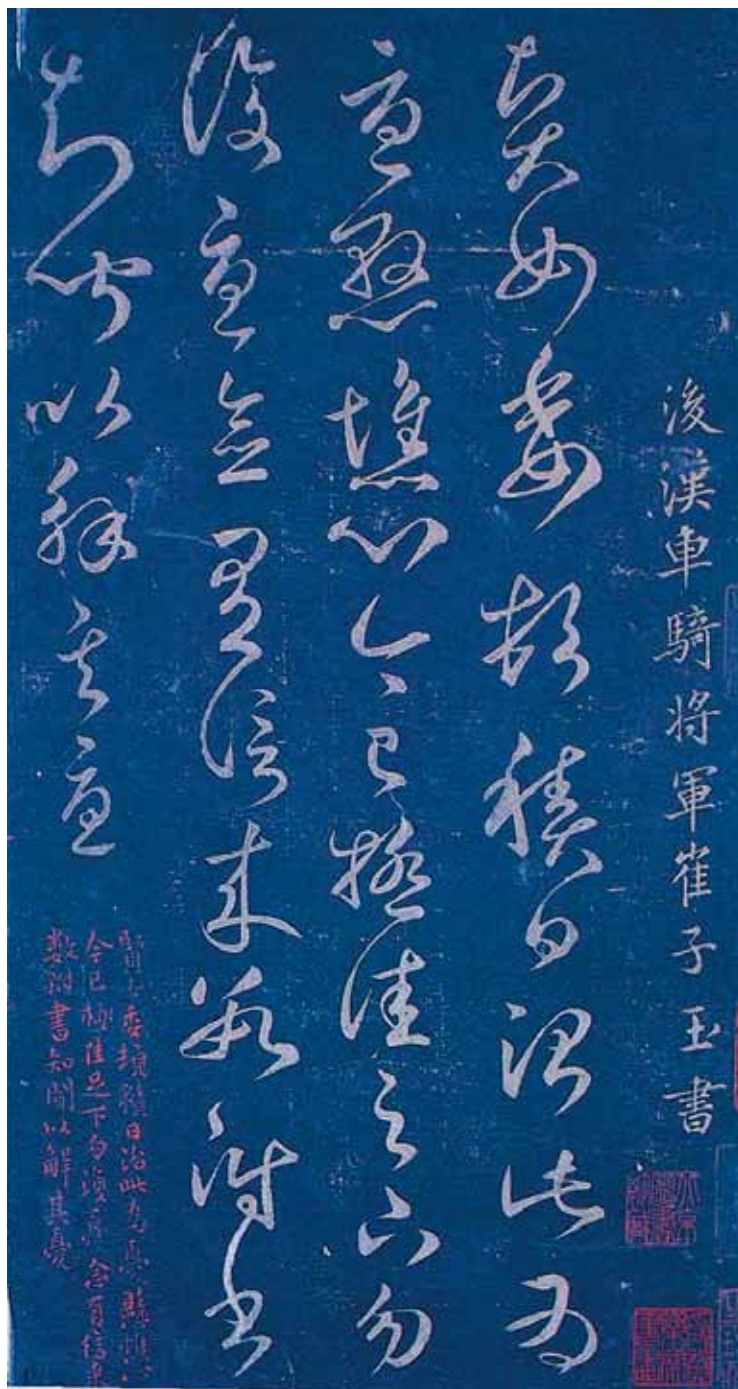 後漢車騎将軍崔子玉書
賢女委頓積日治此為
憂懸憔心今已極佳足下勿
復憂念有信来數附書
知聞以解其憂
賢女委頓積日治此為憂懸憔心
今已極佳足下勿復憂念有信来
數附書知聞以解其憂